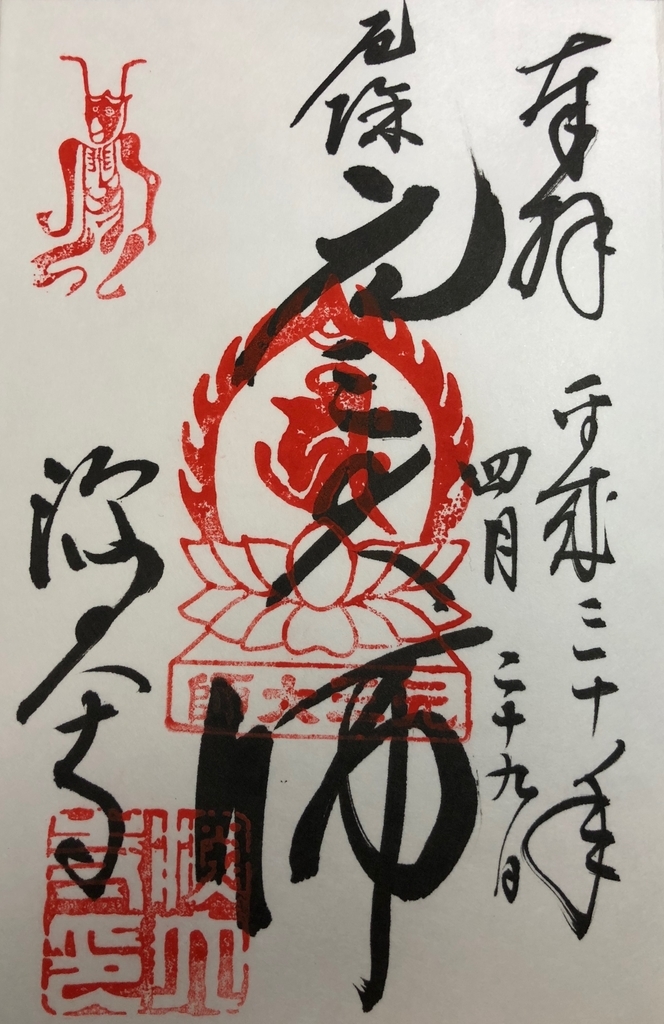 奉拝
平成三十年
四月二十九日
厄除
元三大師
師大三元
深大寺
深大寺印